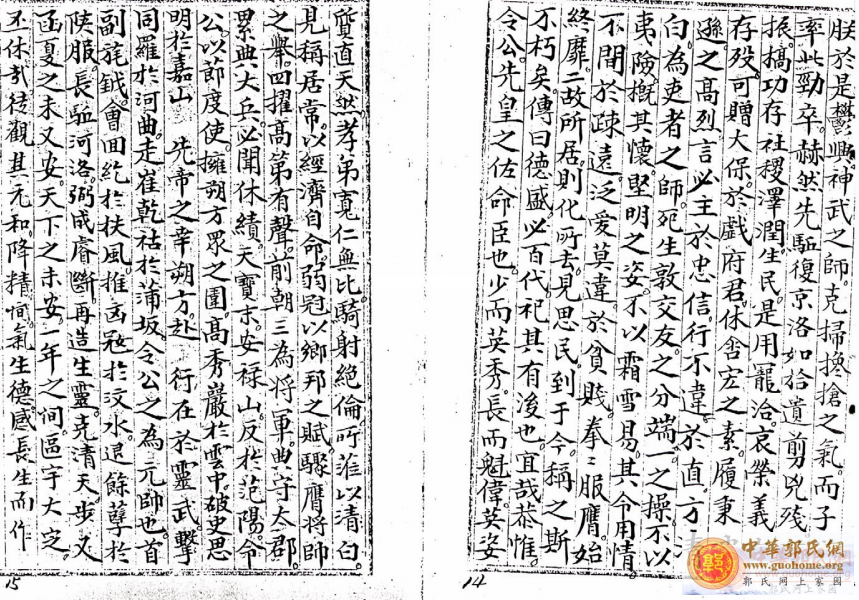 朕於是鬱興神武之師克掃攙搶之氣而子
率此勁卒赫然先駈復京洛如拾遺剪兇残
振搞功存社稷澤潤生民是用寵洽哀榮義
存殁可贈大保於戲府君休含宏之素履秉
遜之高烈言必主於忠信行不違於直方
白為吏者之師死生敦交友之分端一之操不以
夷險概其懷堅明之姿不以霜雪易其令用情
不間於疎遠泛爱莫違於貧賤拳〻服膺始
終靡二故所居則化所去見思民到于今稱之斯
不朽矣傳曰德盛必百代祀其有後也宜哉恭惟
令公先皇之佐命臣也少而英秀長而魁偉英姿
14
質直天然孝弟寬仁無比騎射絕倫所蒞以清白
見稱居常以經濟自命弱冠以鄉邦之賦驟膺將帥
之舉四擢高第有聲前朝三為將軍典守大郡
累典大兵必聞休績天寶末安祿山反於范陽令
公以節度使擁朔方眾之圍高秀巖於雲中破史思
明於嘉山 先帝之幸朔方赴 行在於靈武擊
同羅於河曲走崔乾祐於蒲坂令公之為元帥也首
副旄鉞會回紇於扶風推凶冦於汶水退餘孽於
陕服長駈河洛弼成睿斷再造生靈克清天步又
函夏之未又安天下之未安一年之间區宇大定
不休哉徒觀其元和降精間氣生德感長生而作
15
中華郭氏網
www.guohome.org
郭氏网上家园